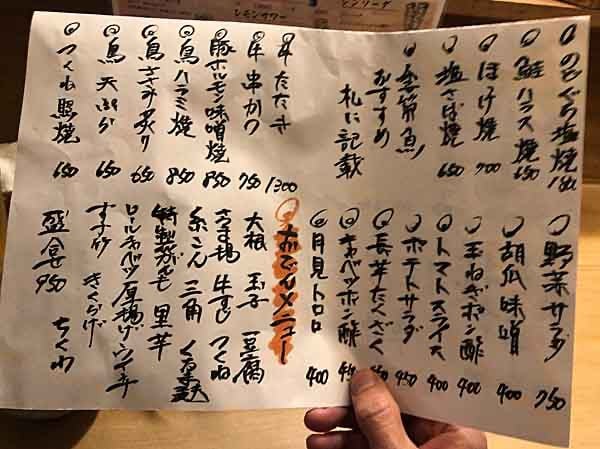 レモンサワー
のどぐろ塩焼
鮭ハラス焼 650
ほっけ焼 700
塩さば焼 650
季節魚!
おすすめ
札に記載
牛たたき 1300
牛串かつ 750
豚ホルモン味噌焼 850
鳥ハラミ焼 850
鳥ささみ炙り 650
鳥天ぷら 650
つくね照焼 650
野菜サラダ 750
胡瓜味噌 400
玉ねぎポン酢 400
トマトスライス 400
ポテトサラダ 450
長芋たくざく
キャベツポン酢
月見トロロ 400
おでんメニュー
大根 玉子 豆腐
さつま揚 牛すじ つくね
糸こん 三角 くるま麩
特製がんも 里芋
ロールキャベツ 厚揚げ ウインナー
すき焼 きくらげ
盛合 950 ちくわ